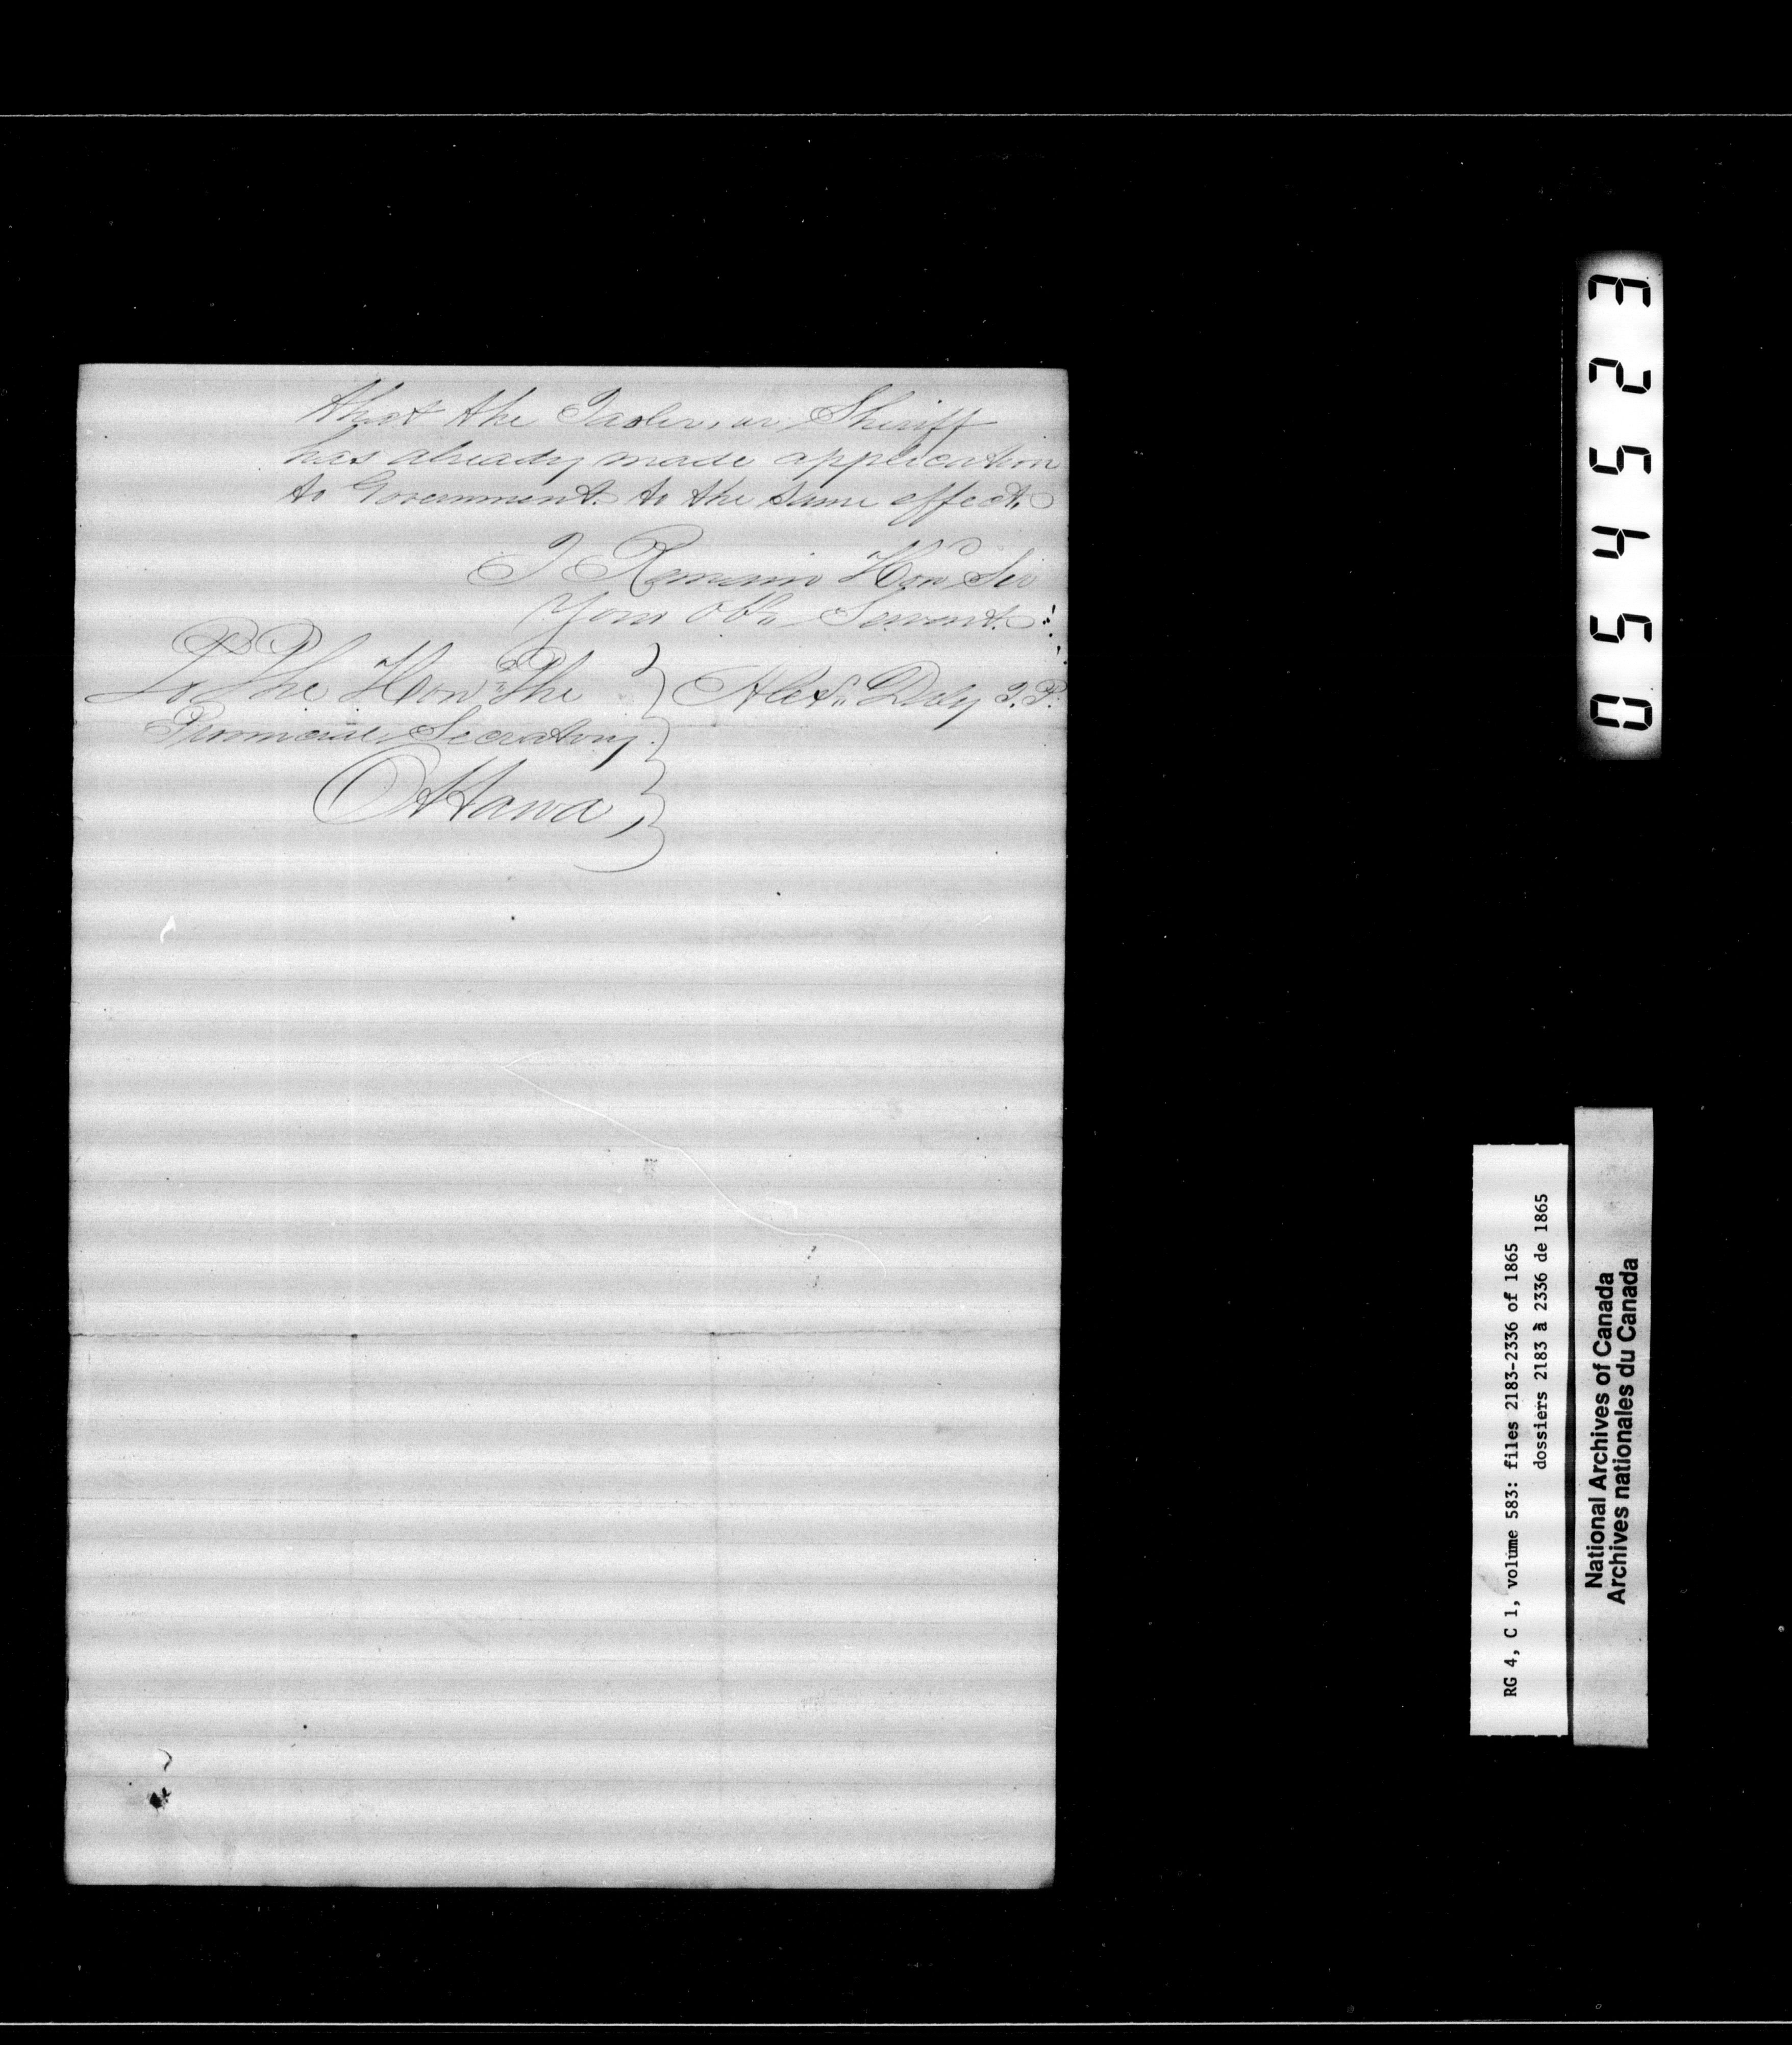 that the Jaoler, or Sheriff
has already made application
to Government. to the same effect.
I Remain Hon Sir
Your Obt. Servant.
To The Hon. The
Provincial Secretary.
Ottawa,
Alexr. Daly J.P.
054523
RG 4, C 1, volume 583: files 2183-2336 of 1865
dossiers 2183 à 2336 de 1865
National Archives of Canada
Archives nationales du Canada